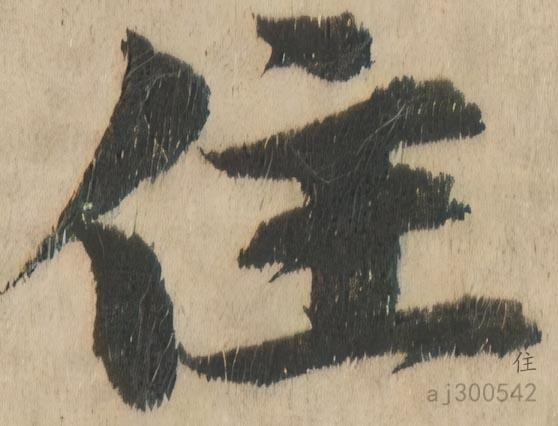 住
住
aj300542